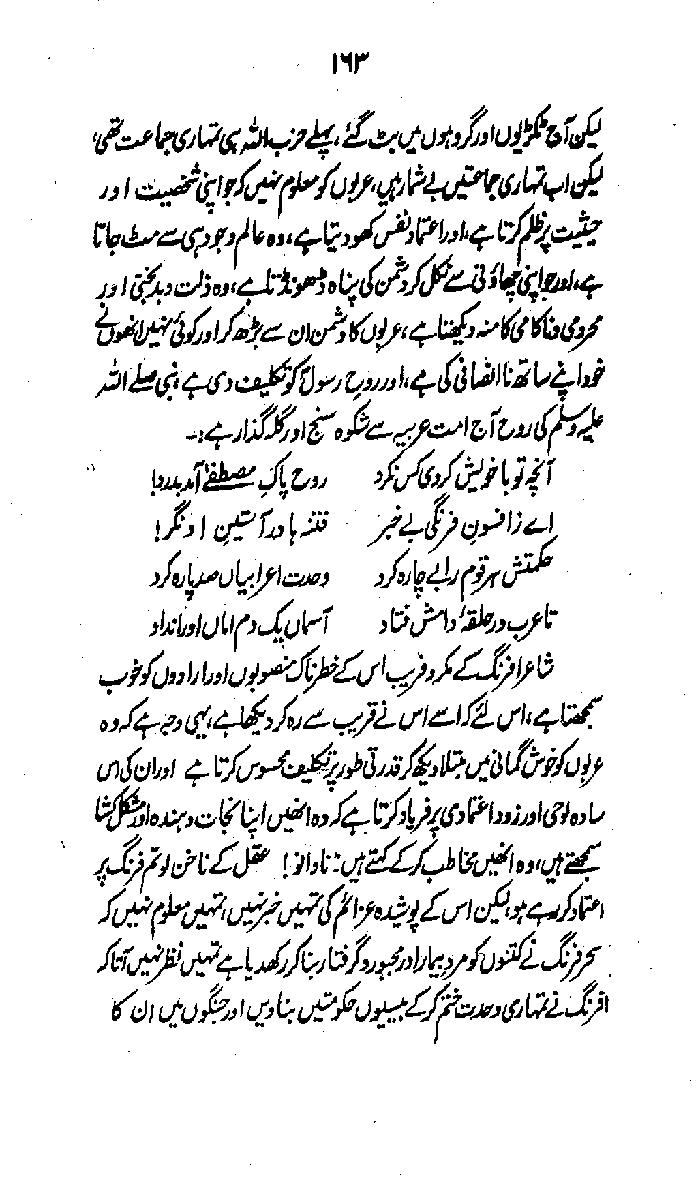 ۱۶۳
لیکن آج ٹکڑیوں اور گروہوں میں بٹ گئے، پہلے حزب اللہ ہی تمہاری جماعت تھی،
لیکن اب تمہاری جماعتیں بے شمار ہیں، عربوں کو معلوم نہیں کہ جو اپنی شخصیت اور
حیثیت پر ظلم کرتا ہے، اور اعتماد نفس کھو دیتا ہے، وہ عالم وجود ہی سے مٹ جاتا
ہے، اور جو اپنی چھاؤنی سے نکل کر دشمن کی پناہ ڈھونڈتا ہے، وہ ذلت و بدبختی اور
محرومی و ناکامی کا منہ دیکھتا ہے، عربوں کا دشمن ان سے بڑھ کر اور کوئی نہیں انھوں نے
خود اپنے ساتھ نا انصافی کی ہے، اور روح رسولؐ کو تکلیف دی ہے، نبی صلے اللہ
علیہ وسلم کی روح آج امت عربیہ سے شکوہ سنج اور گلہ گذار ہے:۔
آنچہ تو با خویش کردی کس نکرد روح پاکِ مصطفےٰ آمد بدرد!
اے ز افسونِ فرنگی بے خبر فتنہ ہا در آستینِ او نگر!
حکمتش ہر قوم را بے چارہ کرد وحدت اعرابیاں صد پارہ کرد
تا عرب در حلقۂ دامش فتاد آسماں یک دم اماں او را نداد
شاعر افرنگ کے مکر و فریب اس کے خطرناک منصوبوں اور ارادوں کو خوب
سمجھتا ہے، اس لئے کہ اسے اس نے قریب سے رہ کر دیکھا ہے، یہی وجہ ہے کہ وہ
عربوں کو خوش گمانی میں مبتلا دیکھ کر قدرتی طور پر تکلیف محسوس کرتا ہے اور ان کی اس
سادہ لوحی اور زود اعتمادی پر فریاد کرتا ہے کہ وہ انھیں اپنا نجات دہندہ اور مشکل کشا
سمجھتے ہیں، وہ انھیں مخاطب کر کے کہتے ہیں: نادانو! عقل کے ناخن لو تم فرنگ پر
اعتماد کر رہے ہو، لیکن اس کے پوشیدہ عزائم کی تمہیں خبر نہیں، تمہیں معلوم نہیں کہ
سحر فرنگ نے کتنوں کو مردِ بیمار اور مجبور و گرفتار بنا کر رکھدیا ہے تمہیں نظر نہیں آتا کہ
افرنگ نے تمہاری وحدت ختم کر کے بیسیوں حکومتیں بنا دیں اور جنگوں میں ان کا